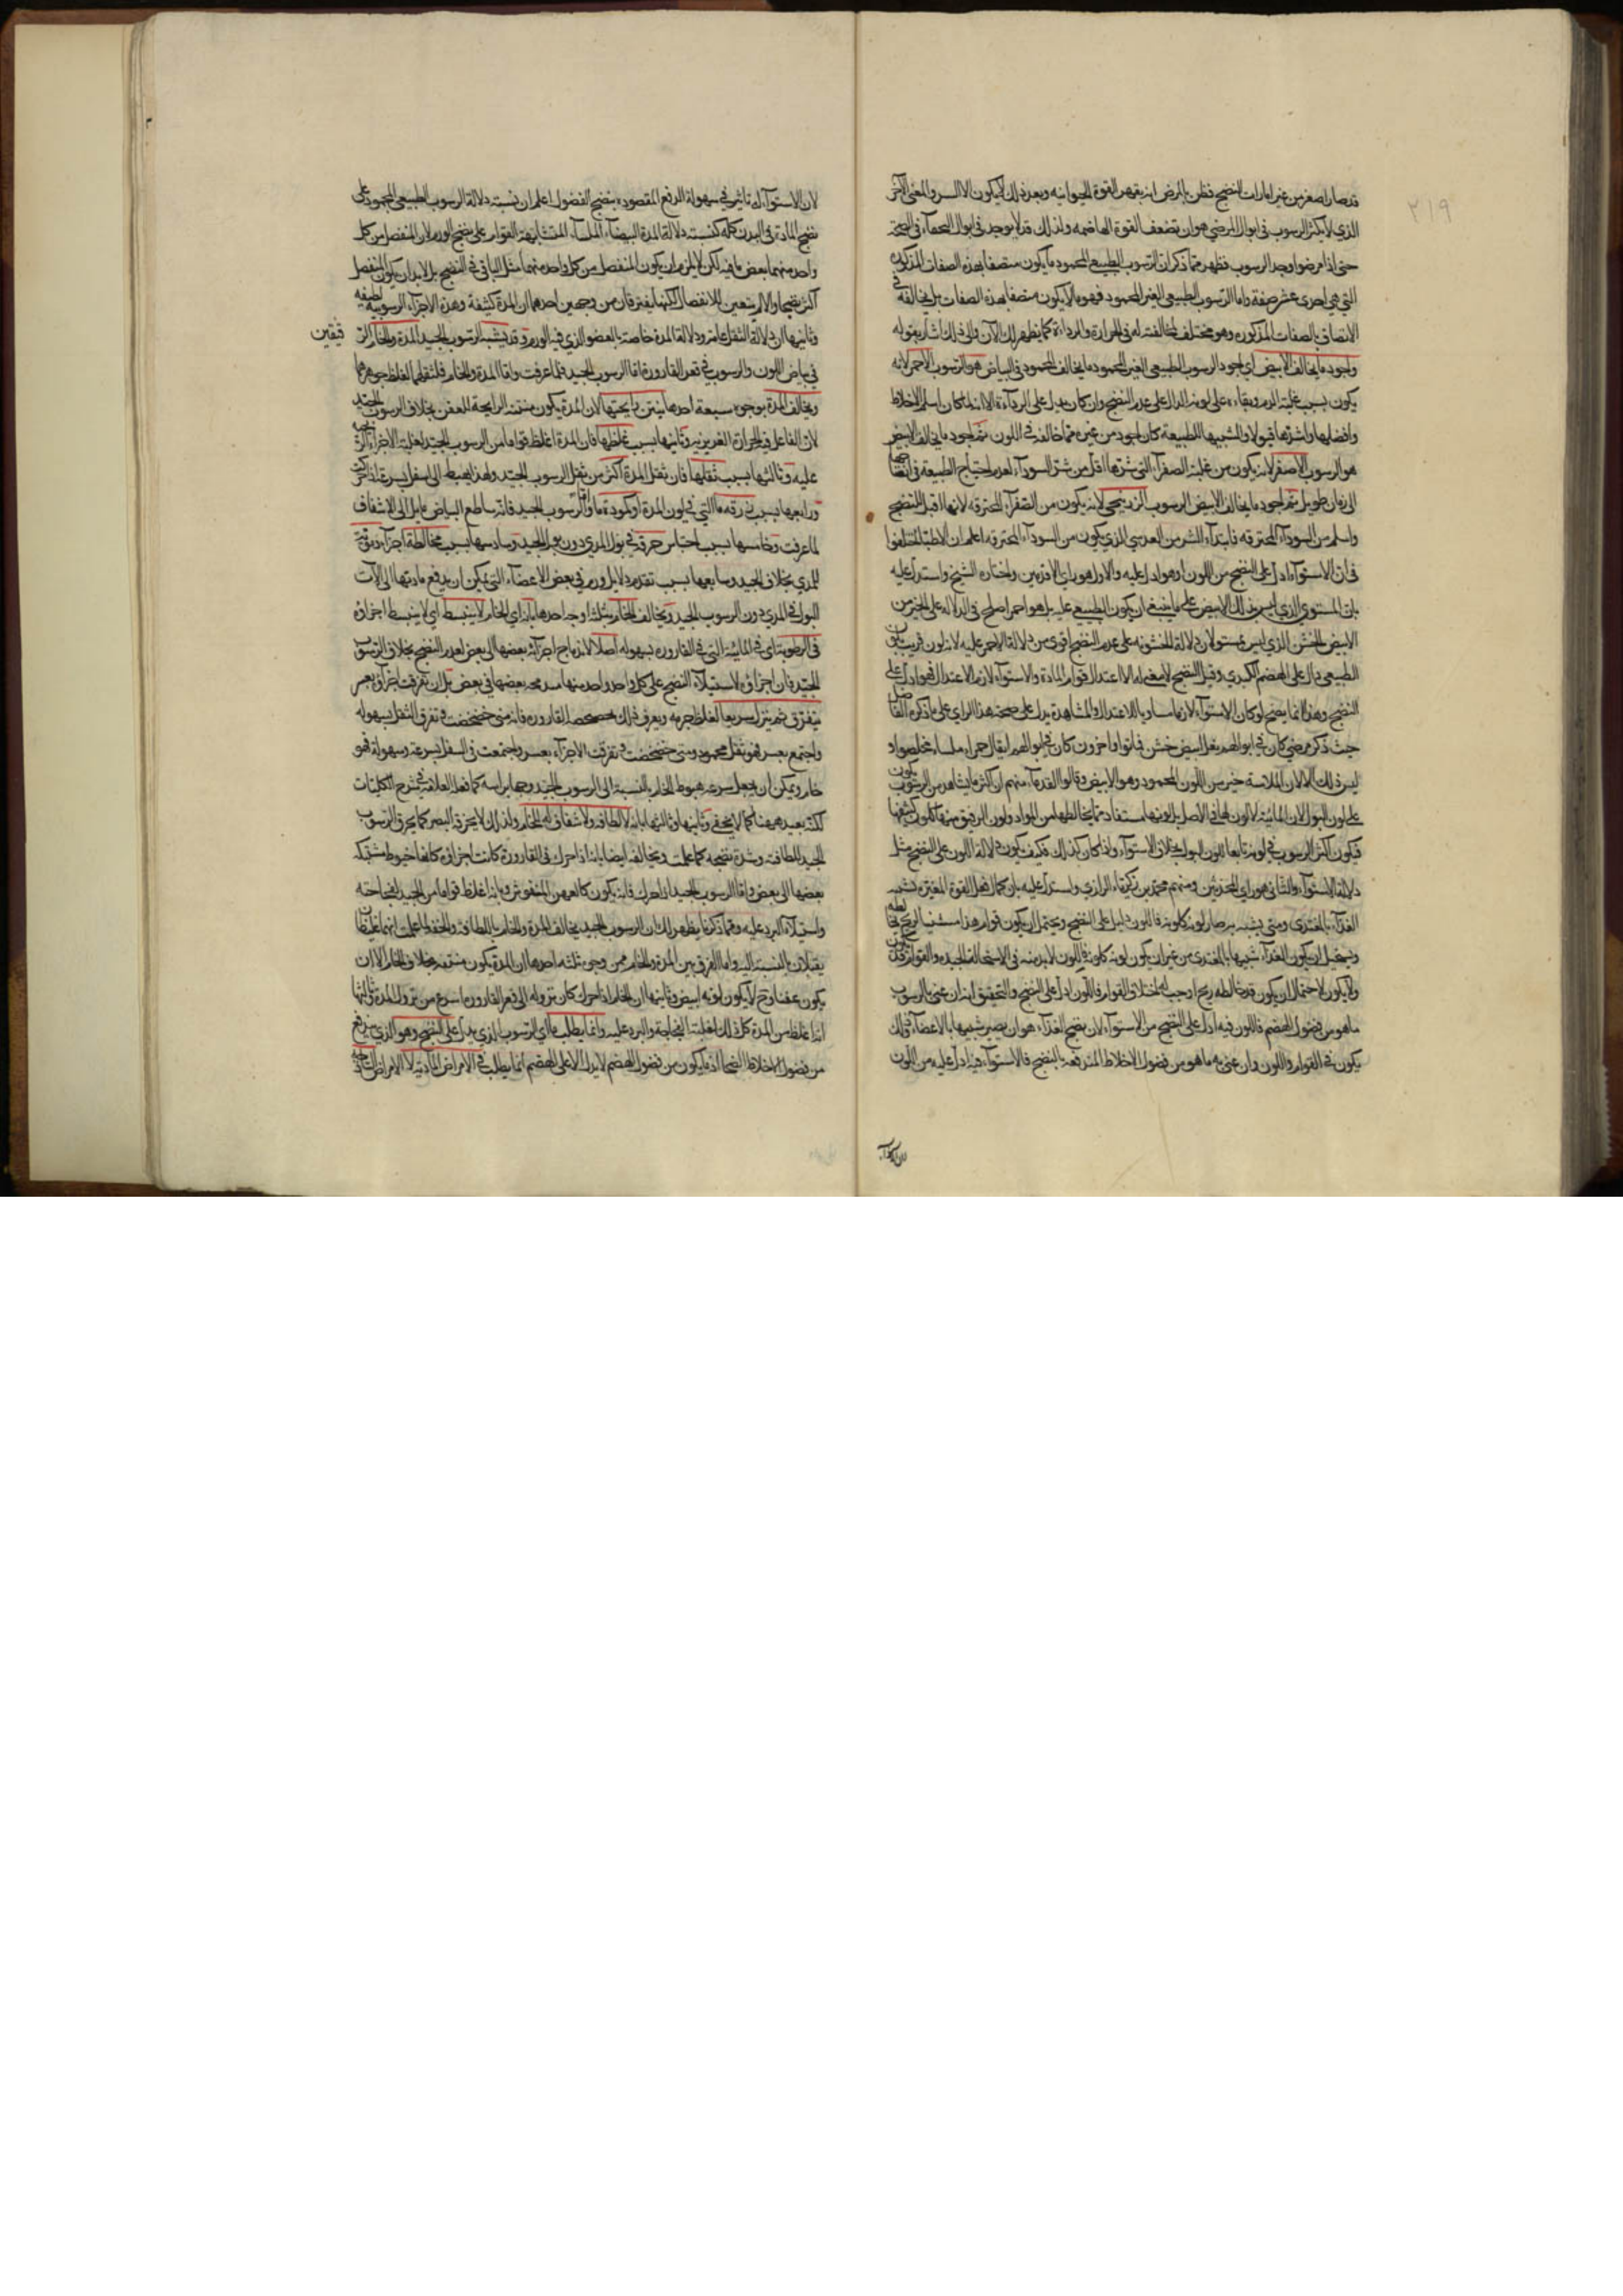 ٢١٩
قد صار اصفر من غير امارات النضج فظن بالمرض انه يقهر القوة الحيوانية وبعد ذلك لا يكون الا السر والمعنى الآخر
الذي لا يكثر الرسوب في ابوال المرضى هو ان تضعف القوة الهاضمة ولذلك قد لا يوجد في ابوال الصحاء في الصحة
حتى اذا مرضوا وجد الرسوب فظهر مما ذكر ان الرسوب الطبيعي المحمود ما يكون متصفا بهذه الصفات المذكورة
التي هي احدى عشر صفة واما الرسوب الطبيعي الغير المحمود فهو ما لا يكون متصفا بهذه الصفات بل يخالفه في
الاتصاف بالصفات المذكورة وهو مختلف لمخالفته له في الحرارة والرداءة كما يظهر لك الآن والى ذلك اشار بقوله
واجود ما يخالف الابيض اي اجود الرسوب الطبيعي الغير المحمود ما يخالف المحمود في البياض هو الرسوب الاحمر لانه
يكون بسبب غلبة الدم وبقاءه على لونه الدال على عدم النضج وان كان يدل على الرداءة الا انه لما كان اسلم الاخلاط
وافضلها واشدها قبولا والشبيها للطبيعة كان اجود من غيره مما خالفه في اللون ثم اجود ما يخالف الابيض
هو الرسوب الاصفر لانه يكون من غلبة الصفراء التي شرها اقل من شر السوداء لعدم احتياج الطبيعة في انضاجها
الى زمان طويل ثم اجود ما يخالف الابيض الرسوب الزرنيخي لانه يكون من الصفراء المحترقة لانها اقبل للنضج
واسلم من السوداء المحترقة فابتداء الشر من العدسي الذي يكون من السوداء المحترقة اعلم ان الاطباء اختلفوا
في ان الاستواء ادل على النضج من اللون او هو ادل عليه والاول هو راي الاقدمين واختاره الشيخ واستدل عليه
بان المستوي الذي ليس بذلك الابيض على ما ينبغي ان يكون الطبيعي عليه بل هو احمر اصلح في الدلالة على الخير من
الابيض الخشن الذي ليس بمستو لان دلالة الخشونة على عدم النضج اقوى من دلالة الاحمر عليه لانه لون قريب
الطبيعي دال على الهضم الكبدي وقيل النضج لا معنى له الا اعتدال قوام المادة والاستواء لازم الاعتدال فهو ادل على
النضج وهذا انما يصح لو كان الاستواء لازما مساويا للاعتدال والمشاهدة يدل على صحة هذا الراي على ما ذكره الفاضل
حيث ذكر مرضى كان في ابوالهم ثفل ابيض خشن فماتوا واخرون كان في ابوالهم اثفال حمراء ملساء تخلصوا و
ليس ذلك الا لان الملاسة خير من اللون المحمود وهو الابيض وقالوا القدماء منهم ان اكثر ما يشاهد من الرسوب يكون
على لون البول لان المائية لا لون لها في الاصل بل لونها مستفاد مما يخالطها من المواد ولون الرقيق منها كلون كثيفها
فيكون اكثر الرسوب في لونه تابعا للون البول بخلاف الاستواء واذا كان كذلك فكيف يكون دلالة اللون على النضج مثل
دلالة الاستواء والثاني هو راي المحدثين ومنهم محمد بن زكرياء الرازي واستدل عليه بان كمال فعل القوة المغيرة تشبيه
الغذاء بالمغتذى ومتى يشبه به صار لونه كلونه فاللون دليل على النضج ويحتمل ان يكون قوام هذا مشتبها لريح يخالطه
ويستحيل ان يكون الغذاء شبيها بالمغتذى من غير ان يكون لونه كلونه فاللون لا بد منه في الاستحالة الجيدة والقوام قد يكون
ولا يكون لاحتمال ان يكون قد خالطه ريح اوجب له اختلاف القوام فاللون ادل على النضج والتحقيق انه ان عنى بالرسوب
ما هو من فضول الهضم فاللون فيه ادل على النضج من الاستواء لان نضج الغذاء هو ان يصير شبيها بالاعضاء وذلك
يكون في القوام واللون وان عنى به ما هو من فضول الاخلاط المندفعة بالنضج فالاستواء فيه ادل عليه من اللون
لان الاستواء له تاثير في سهولة الدفع المقصود بنضج الفضول اعلم ان نسبة دلالة الرسوب الطبيعي المحمود على
نضج المادة في البدن كله كنسبة دلالة المدة البيضاء الملساء المتشابهة القوام على نضج الورم لان المنفصل من كل
واحد منهما بعض ما فيه لكن لا يلزم ان يكون المنفصل من كل واحد منهما مثل الباقي في النضج بل لا بد ان يكون المنفصل
اكثر نضجا والا لم يتعين للانفصال لكنهما يفترقان من وجهين احدهما ان المدة كثيفة وهذه الاجزاء الرسوبية لطيفة
وثانيهما ان دلالة الثفل عامة ودلالة المدة خاصة بالعضو الذي فيه الورم وقد يشبه الرسوب الجيد المدة والخام
في بياض اللون والرسوب في قعر القارورة فاما الرسوب الجيد فلما عرفت واما المدة والخام فلثقلهما لغلظ جوهرهما
ويخالف المدة بوجوه سبعة احدها بنتن رايحتها لان المدة يكون منتنة الرايحة للعفن بخلاف الرسوب الجيد
لان الفاعل فيه الحرارة الغريزية وثانيها بسبب غلظها فان المدة اغلظ قواما من الرسوب الجيد لغلبة الاجزاء
عليه وثالثها بسبب ثقلها فان ثقل المدة اكثر من ثقل الرسوب الجيد ولهذا يهبط الى اسفل بسرعة اكثر
ورابعها بسبب زرقة ما التي في لون المدة او كمودة ما واما الرسوب الجيد فانه ساطع البياض مايل الى الاشفاف
لما عرفت وخامسها بسبب احتباس حرقة في بول المدي دون بول الجيد وسادسها بسبب مخالطة اجزاء دموية
للمدي بخلاف الجيد وسابعها بسبب تقدم دلايل ورم في بعض الاعضاء التي يمكن ان يدفع مادتها الى آلات
البول في المدي دون الرسوب الجيد ويخالف الخام بثلثة اوجه احدها بانه اي الخام لا ينبسط اي لا ينبسط اجزاؤه
في الرطوبة اي في المائية التي في القارورة بسهولة اصلا لاندماج اجزائه بعضها الى بعض لعدم النضج بخلاف الرسوب
الجيد فان اجزاؤه لاستيلاء النضج على كل واحد واحد منها بعضها في بعض بل ان تفرقت اجزاؤه بعسر
يتفرق ثم ينزل سريعا لغلظ جرمه ويعرف ذلك القارورة فانه متى خضخضت فتفرق الثفل بسهولة
واجتمع بعسر فهو ثفل محمود ومتى خضخضت فتفرقت الاجزاء بعسر واجتمعت في السفل بسرعة وسهولة فهو
خام ويمكن ان يجعل سرعة هبوط الخام بالنسبة الى الرسوب الجيد وجها براسه كما فعله العلامة في شرح الكليات
لكنه بعيد ههنا كما لا يخفى وثانيها وثالثها بانه لا لطافة ولا شفاف له للخام ولذلك لا يخرقه البصر كما يخرق الرسوب
الجيد للطافته وشدة نضجه كما علمت ويخالفه ايضا بانه اذا حرك في القارورة كانت اجزاؤه كانها خيوط مشتبكة
بعضها الى بعض واما الرسوب الجيد اذا حرك فانه يكون كالعهن المنفوش وبانه اغلظ قواما من الجيد لفجاجته
واستيلاء البرد عليه ومما ذكرنا يظهر لك ان الرسوب الجيد يخالف المدة والخام باللطافة والخفة لما علمت انهما غليظان
ثقيلان بالنسبة اليه واما الفرق بين المدة والخام فمن وجوه ثلثة احدها ان المدة يكون منتنة بخلاف الخام الا ان
يكون عفنا وح لا يكون لونه ابيض وثانيها ان الخام اذا حرك كان نزوله الى قعر القارورة اسرع من نزول المدة وثالثها
انه اغلظ من المدة كل ذلك لغلبة الفجاجة والبرد عليه وانما يطلب ما اي الرسوب الذي يدل على النضج وهو الذي يندفع
من فضول الاخلاط اذ ما يكون من فضول الهضم لا يدل الا على الهضم انما يطلب في الامراض المادية لا الامراض